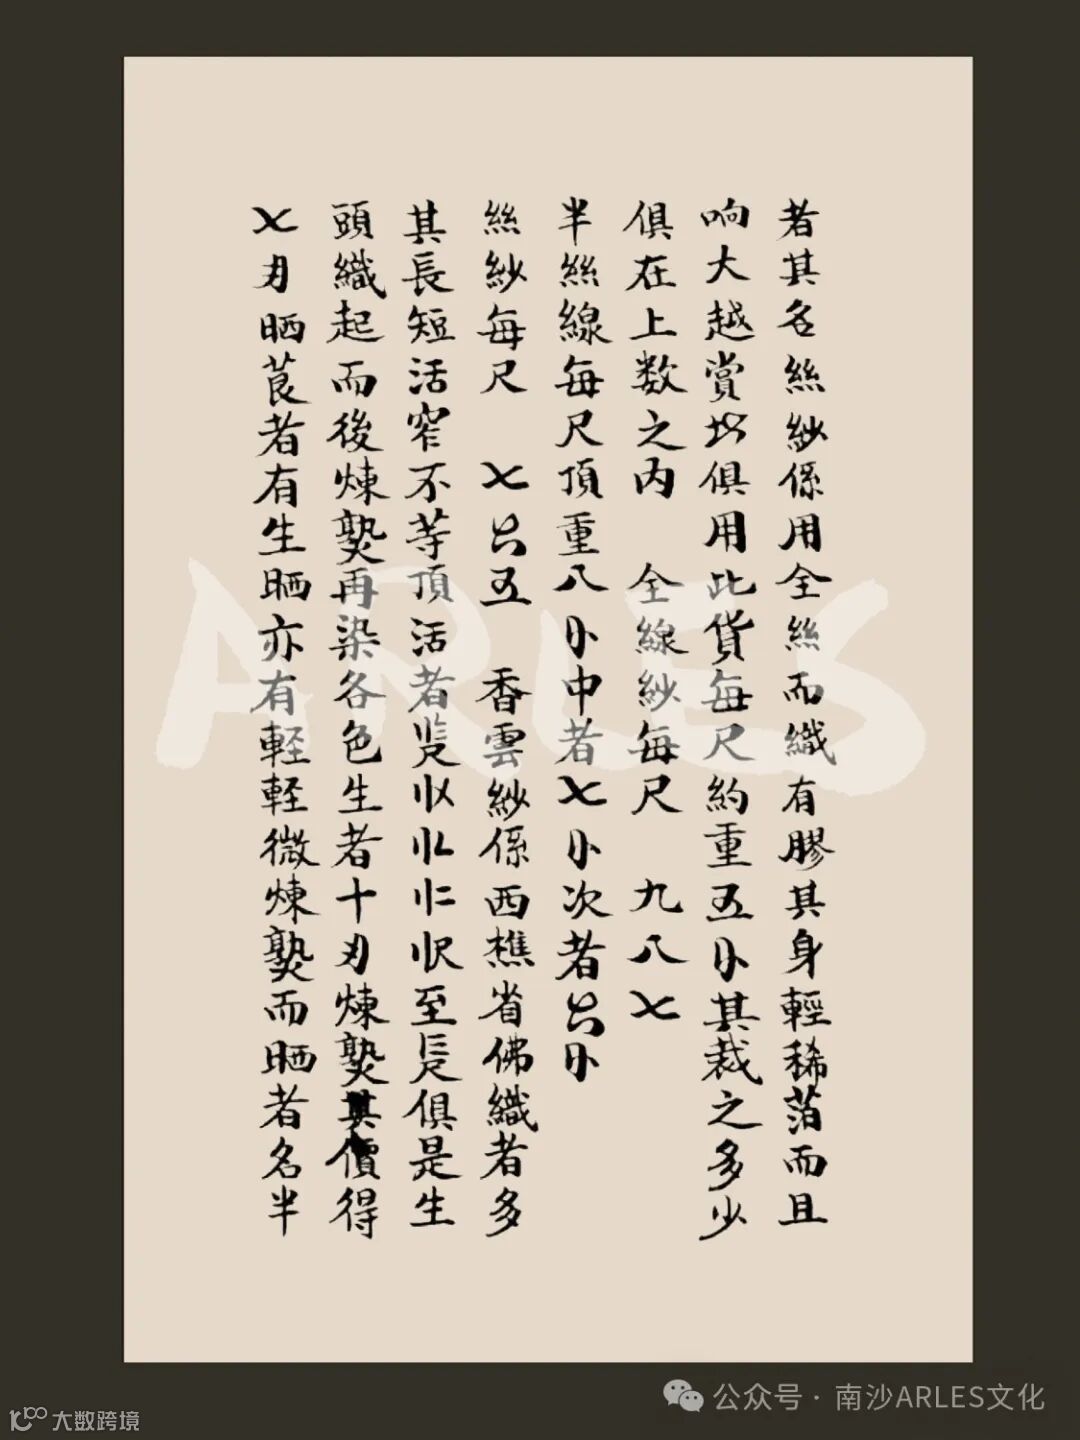 者其名絲紗係用全絲而織有膠其身輕稀萡而且
响大越賞坊俱用此貨每尺約重五卜其裁之多少
俱在上数之內 全線紗每尺 九八七
半絲線每尺頂重八卜中者七卜次者六卜
絲紗每尺 七六五 香雲紗係西樵省佛織者多
其長短活窄不等頂活者
至長俱是生
頭織起而後煉熟再染各色生者十刃煉熟其價得
七刃晒莨者有生晒亦有輕輕微煉熟而晒者名半
ARLES
公众号 · 南沙ARLES文化
大数跨境